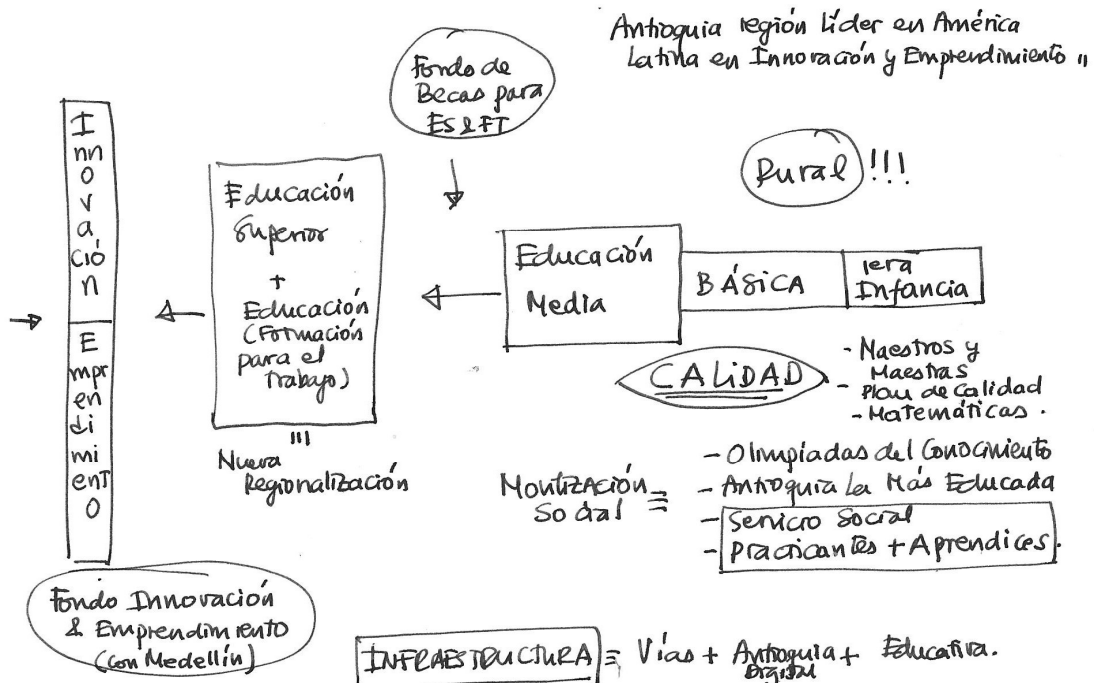 Antioquia región Líder en América
Latina en Innovación y Emprendimiento "
Fondo de
Becas para
ES & FT
Rural !!!
I
nn
o
v
a
ció
n
E
mpr
en
di
mi
enT
O
Educación
Superior
+
Educación
(Formación
para el
Trabajo)
Nueva
Regionalización
Educación
Media
BÁSiCA
1era
Infancia
CALiDAD
- Maestros y
Maestras
- Plan de Calidad
- Matemáticas.
Social ≡
- Olimpíadas del Conocimiento
- Antioquia La Más Educada
- Servicio Social
- Practicantes + Aprendices.
Fondo Innovación
& Emprendimiento
(con Medellín)
INFRAESTRUCTURA = Vías + Antioquia + Educativa.
Digital